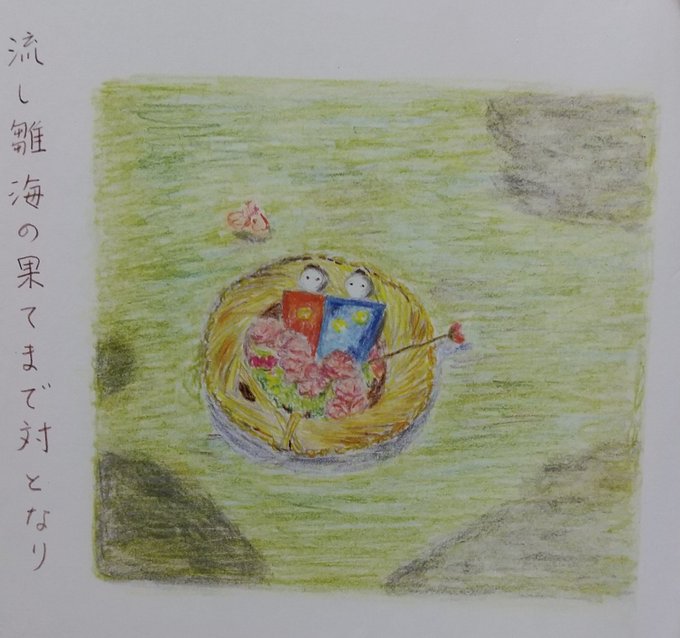 流し雛海の果てまで対となり